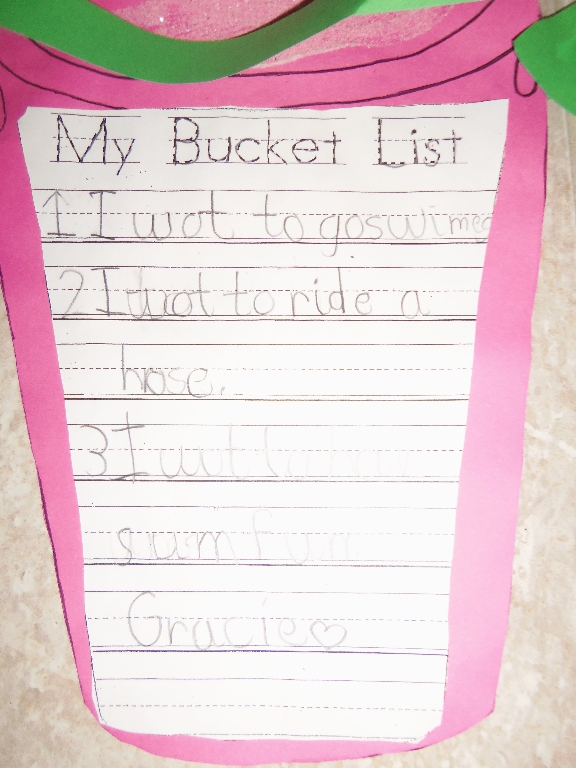 My Bucket List
1 I wot to go swimeg
2 I wot to ride a
hose.
3 I wot to hav
sum fun
Gracie♡